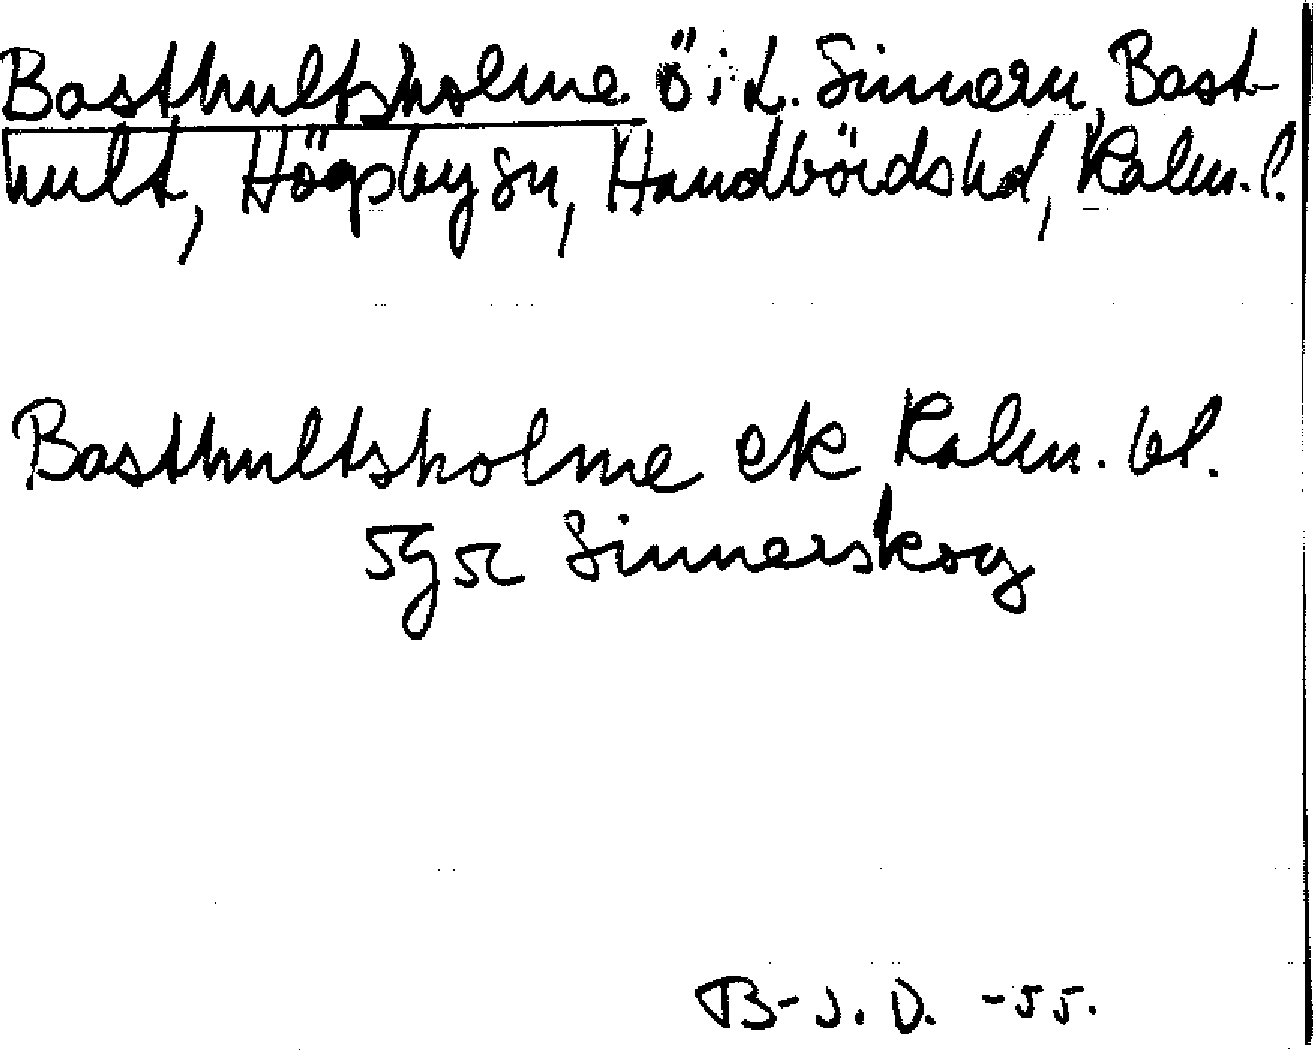 Basthultsholme ö i L. Sinnern, Bast-
hult, Högsby sn, Handbördshd, Kalm. l.
Basthultsholme ek Kalm. bl.
5g5c Sinnerskog
B-J.D. -55.